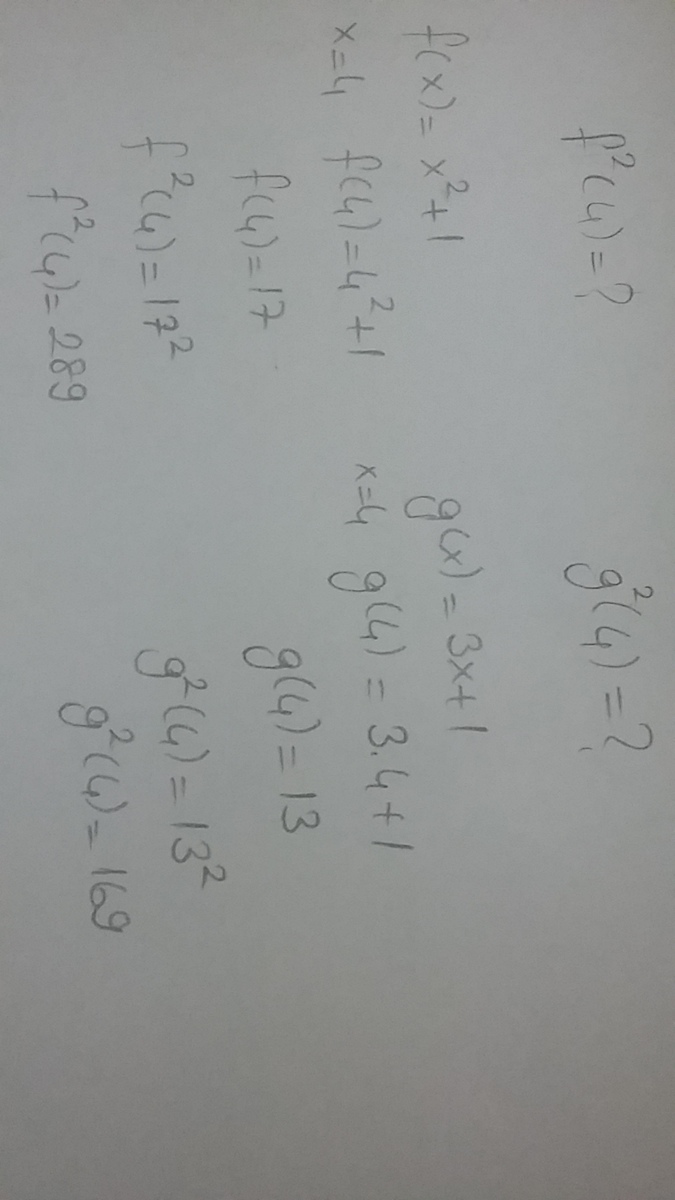 f²(4)=?
f(x)=x²+1
x=4 f(4)=4²+1
f(4)=17
f²(4)=17²
f²(4)=289
g²(4)=?
g(x)=3x+1
x=4 g(4)=3.4+1
g(4)=13
g²(4)=13²
g²(4)=169